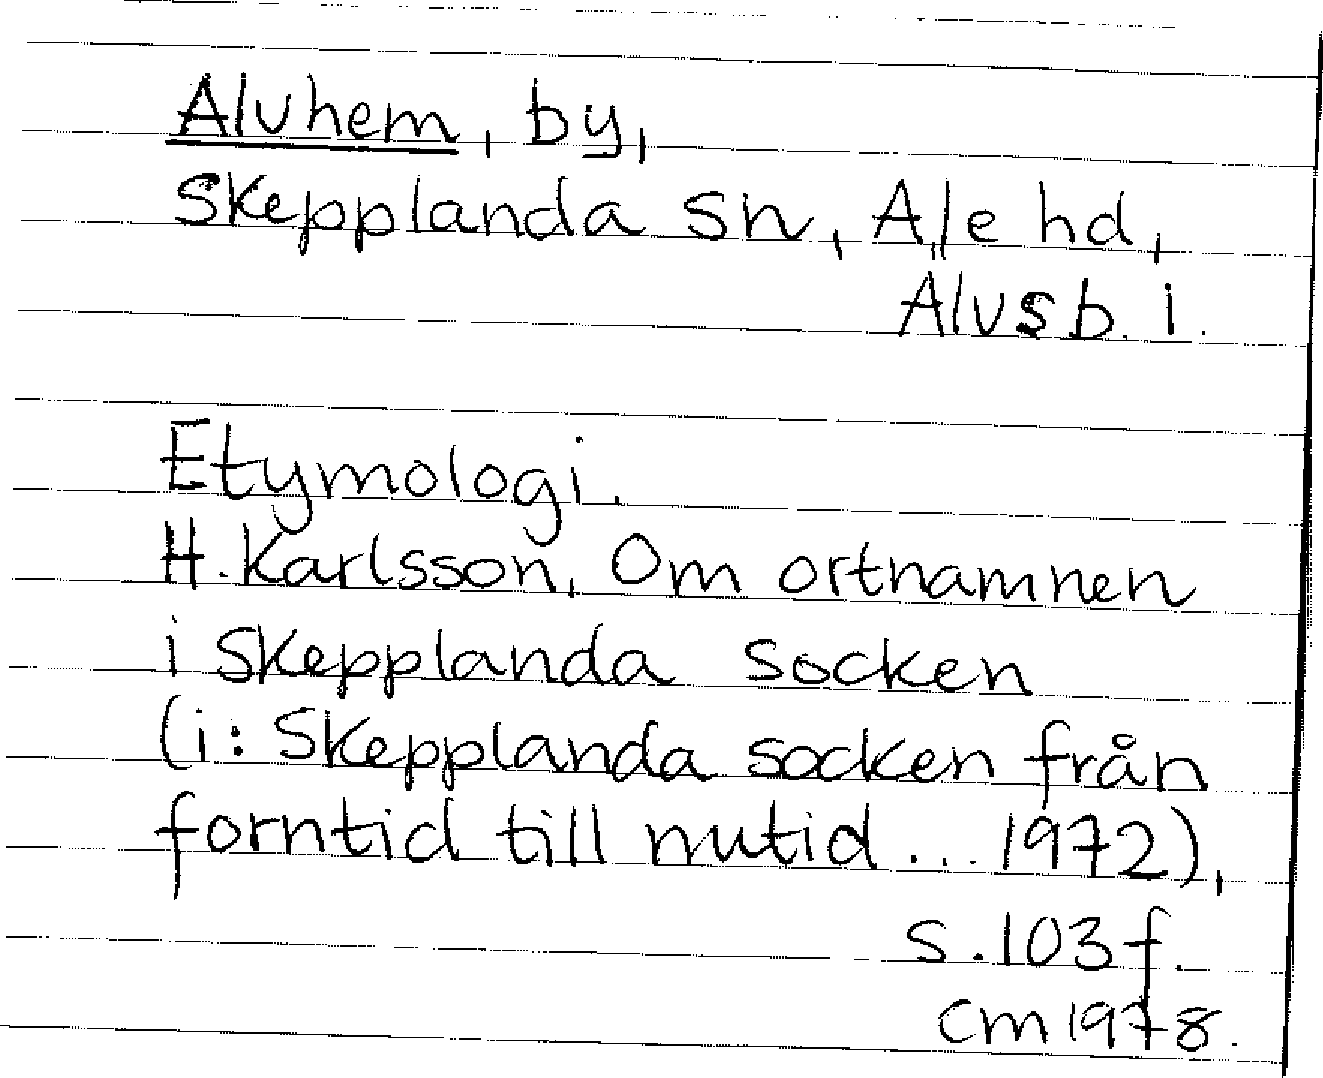 Alvhem, by,
Skepplanda sn, Ale hd,
Älvsb. l.
Etymologi.
H. Karlsson, Om ortnamnen
i Skepplanda socken
(i: Skepplanda socken från
forntid till nutid... 1972),
s. 103 f.
CM 1978.